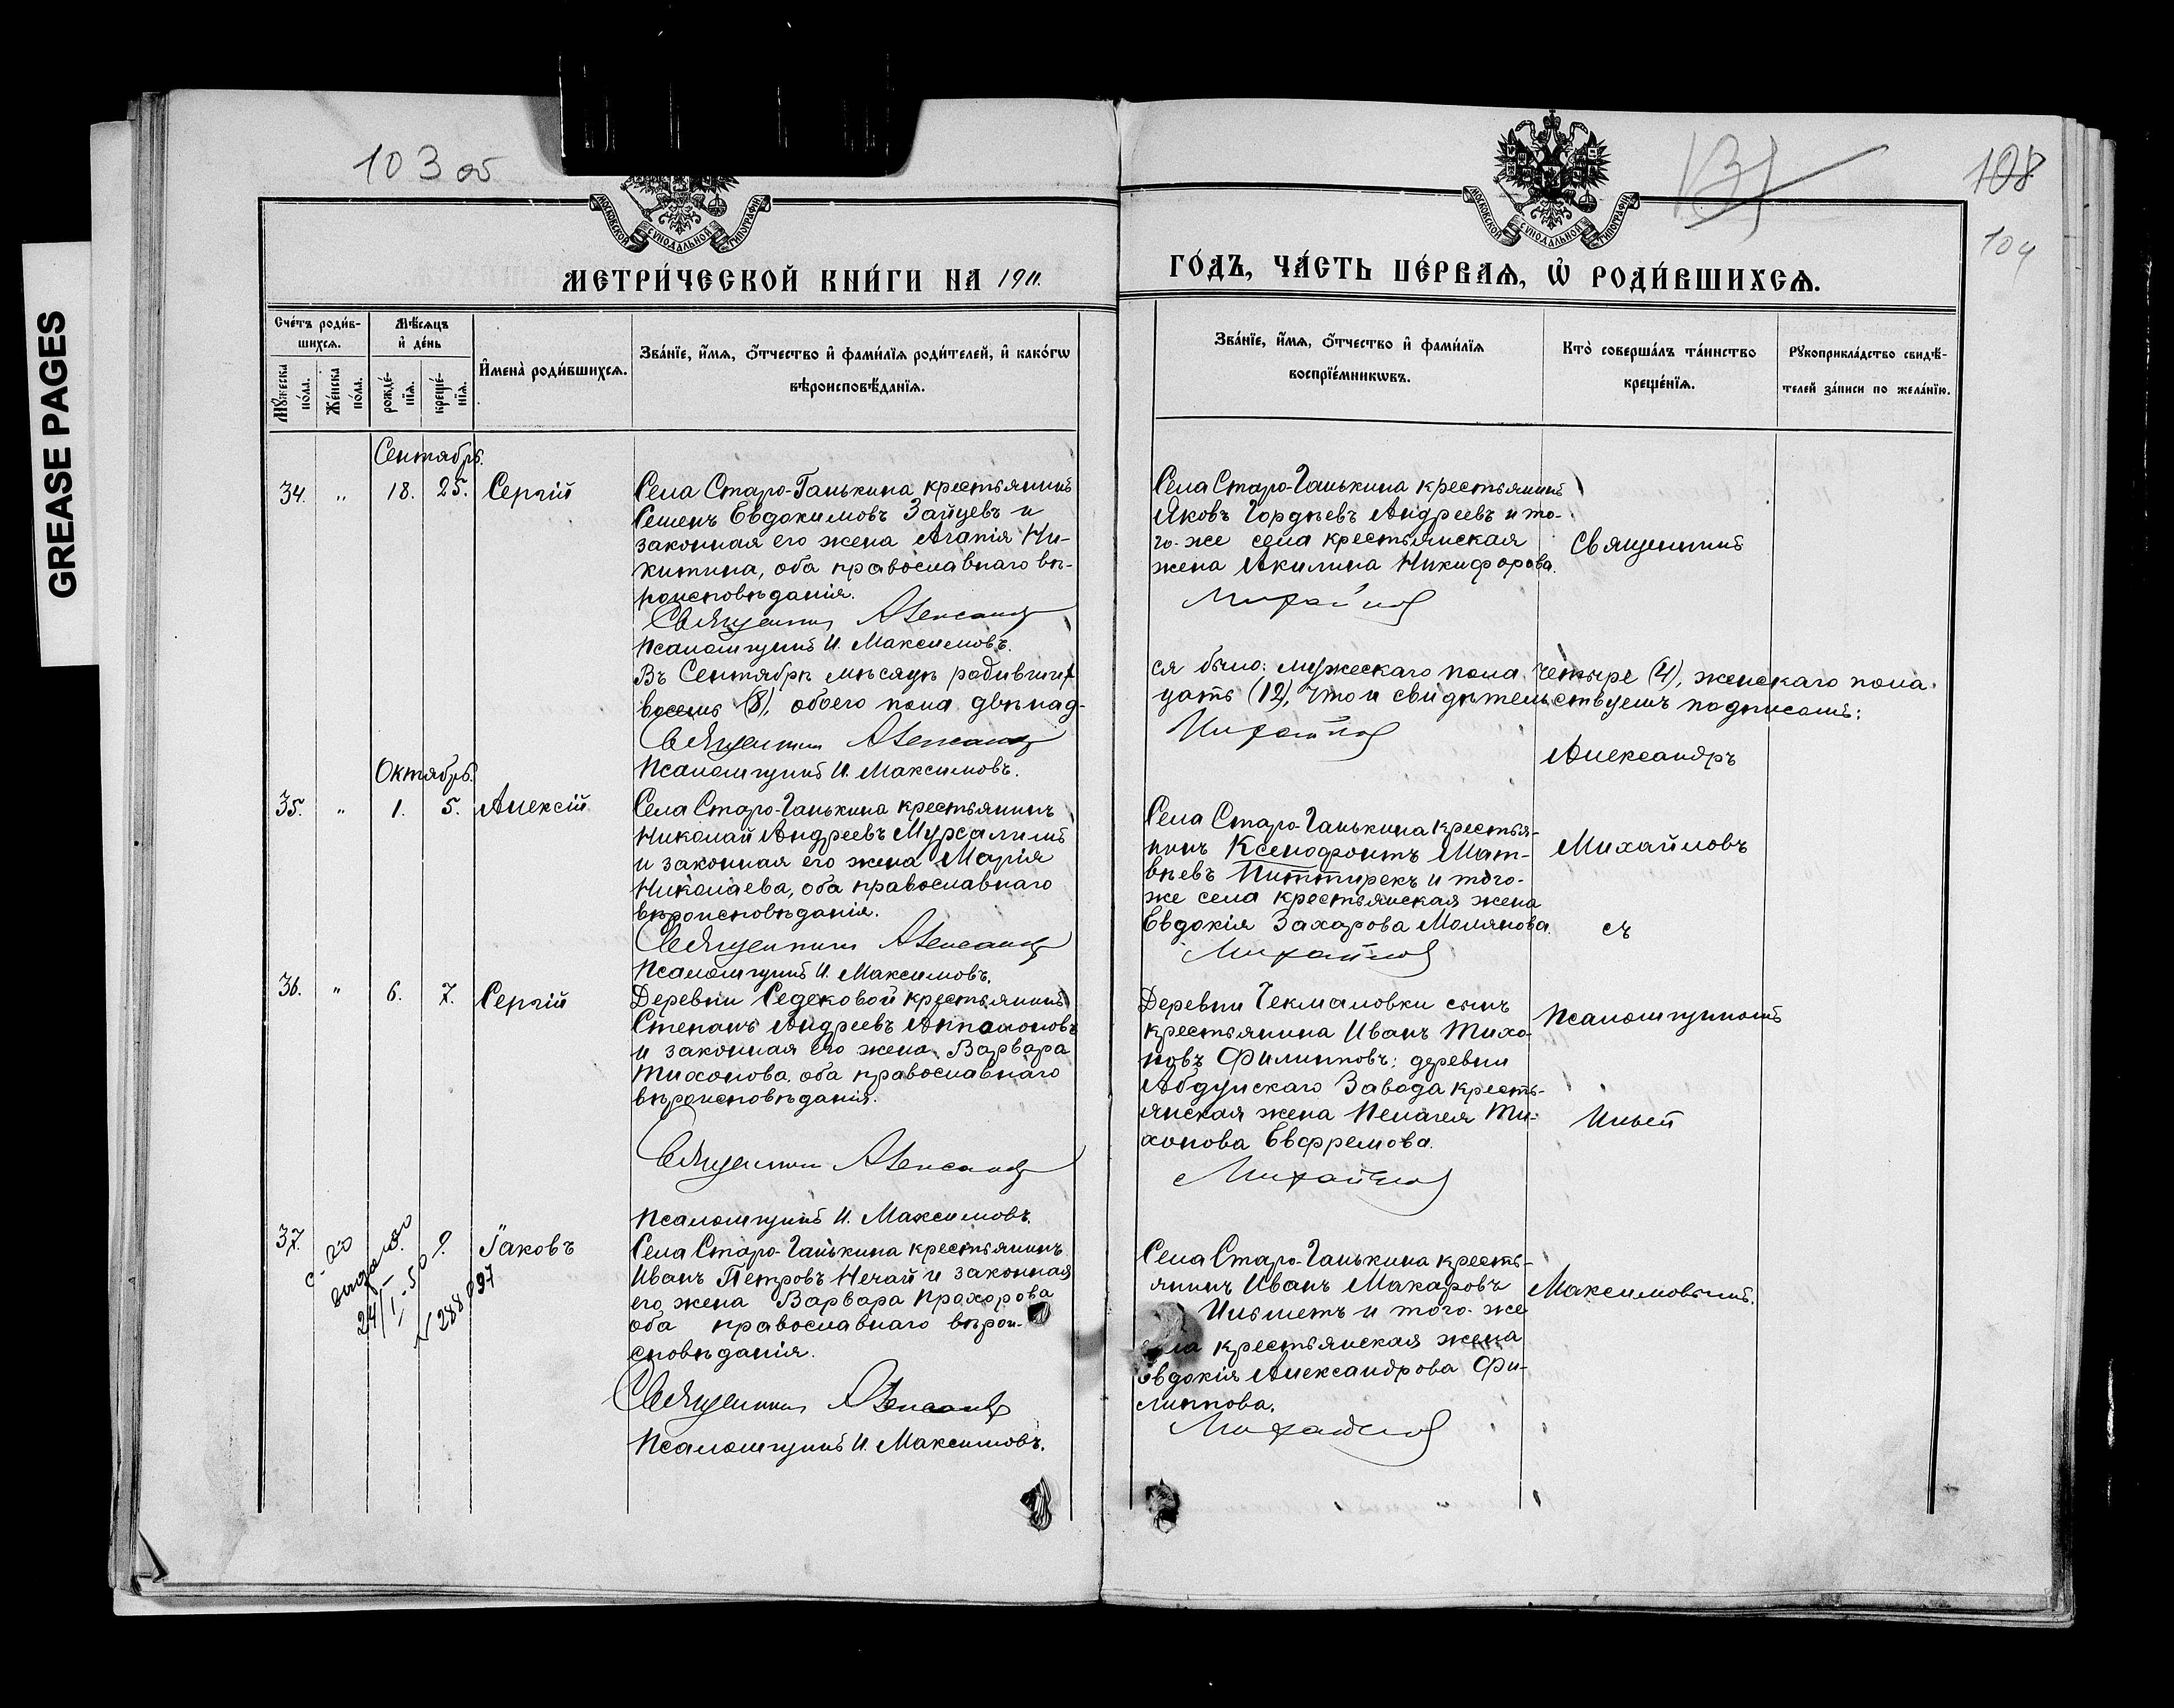 GREASE PAGES
103 об
108
104
МОСКОВСКОЙ СѴНОДАЛЬНОЙ ТИПОГРАФІИ
МОСКОВСКОЙ СѴНОДАЛЬНОЙ ТИПОГРАФІИ
МЕТРИ́ЧЕСКОЙ КНИ́ГИ НА 1911.
ГО́ДЪ, ЧА́СТЬ ПЕ́РВАѦ, Ѽ РОДИ́ВШИХСѦ.
Сче́тъ роди́в-
шихсѧ.
Мꙋ́жеска по́ла.
Же́нска по́ла.
Мѣ́сѧцъ
и҆ де́нь
рожде́-
нїѧ.
креще́-
нїѧ.
И҆мена̀ роди́вшихсѧ.
Зва́нїе, и҆́мѧ, ѻ҆́тчество и҆ фами́лїѧ роди́телей, и҆ како́гѡ
вѣроисповѣ́данїѧ.
Зва́нїе, и҆́мѧ, ѻ҆́тчество и҆ фами́лїѧ
воспрїе́мникѡвъ.
Кто̀ соверша́лъ та́инство
креще́нїѧ.
Рꙋкоприкла́дство свидѣ́-
телей за́писи по жела́нїю.
Сентябрь.
34. " 18. 25. Сергій
Села Старо-Ганькина крестьянинъ
Семенъ Евдокимовъ Зайцевъ и
законная его жена Агапія Ни-
китина, оба православнаго вѣ-
роисповѣданія.
Священникъ Александръ
Псаломщикъ И. Максимовъ.
Села Старо-Ганькина крестьянинъ
Яковъ Гордѣевъ Андреевъ и то-
го-же села крестьянская
жена Акилина Никифорова.
Михайлов
Священникъ
Въ Сентябрѣ мѣсяцѣ родивших
ся было: мужескаго пола четыре (4), женскаго пола
восемь (8), обоего пола двѣнад-
цать (12), что и свидѣтельствуемъ подписомъ:
Священникъ Александръ
Михайлов
Псаломщикъ И. Максимовъ.
Александръ
Октябрь.
35. " 1. 5. Алексій
Села Старо-Ганькина крестьянинъ
Николай Андреевъ Мурсалимъ
и законная его жена Марія
Николаева, оба православнаго
вѣроисповѣданія.
Священникъ Александръ
Псаломщикъ И. Максимовъ.
Села Старо-Ганькина крестья-
нинъ Ксенофонтъ Мат-
вѣевъ Питтирекъ и того-
же села крестьянская жена
Евдокія Захарова Молянова.
Михайлов
Михайловъ
съ
36. " 6. 7. Сергій
Деревни Седяковой крестьянинъ
Степанъ Андреевъ Аппаконовъ
и законная его жена Варвара
Тихонова, оба православнаго
вѣроисповѣданія.
Священникъ Александръ
Псаломщикъ И. Максимовъ.
Деревни Чекмаловки сынъ
крестьянина Иванъ Тихо-
новъ Филипповъ; деревни
Абдулскаго Завода кресть-
янская жена Пелагея Ти-
хонова Евфремова.
Михайлов
Псаломщикомъ
Ильей
37. 9. Іаковъ
с-во
выдано
24/I-50
N 288997
Села Старо-Ганькина крестьянинъ
Иванъ Петровъ Нечай и законная
его жена Варвара Прохорова
оба православнаго вѣрои-
сповѣданія.
Священникъ Александръ
Псаломщикъ И. Максимовъ.
Села Старо-Ганькина кресть-
янинъ Иванъ Макаровъ
Ильметъ и того-же
села крестьянская жена
Евдокія Александрова Фи-
липпова.
Михайлов
Максимовымъ.